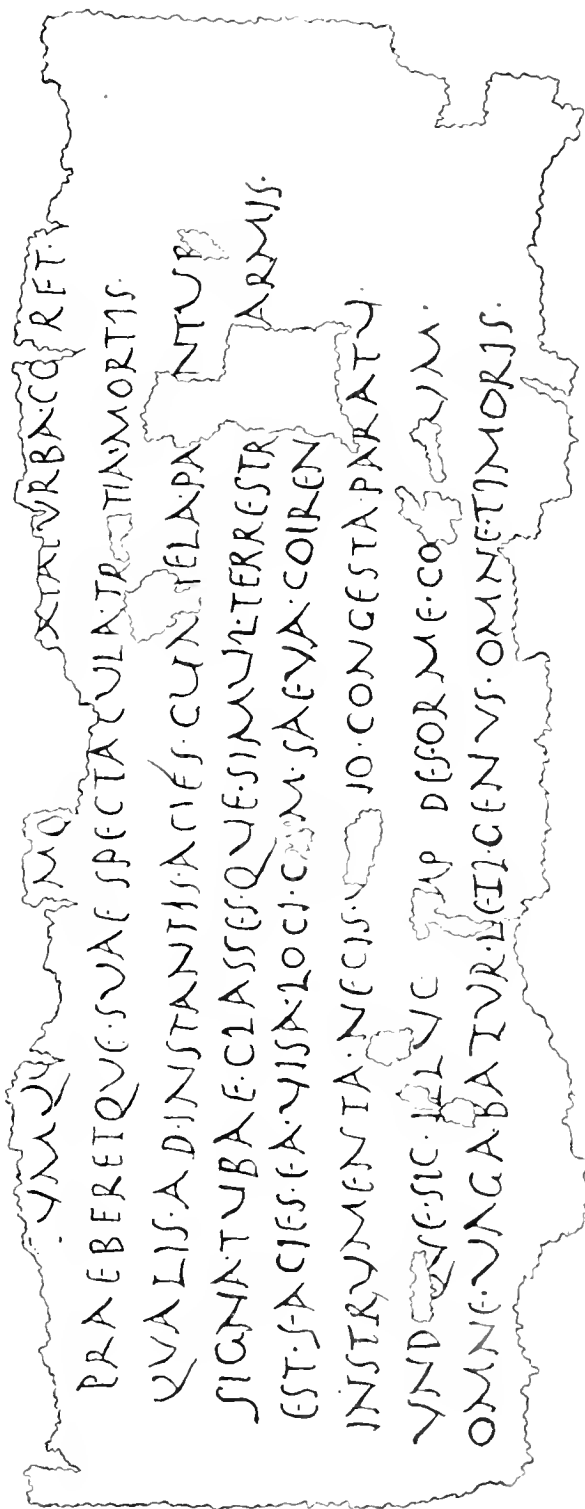 VMQV MO XTAT VRBA·CO RET·V
PRAEBERETQVE·SVAE SPECTACVLA·TR TIA·MORTIS·
QVALIS·AD·INSTANTIS·ACIES·CVM TELA·PA NTVR
SIGNA·TVBAE·CLASSESQVE·SIMVL·TERRESTR ARMIS·
EST·FACIES·EA·VISA·LOCI·C M·SAEVA·COIREN
INSTRVMENTA·NECIS·V IO·CONGESTA·PARATV·
VND QVE·SIC·ILLVC MP DEFORME·CO IVM·
OMNE·VAGABATVR·LETI·GENVS·OMNE·TIMORIS·